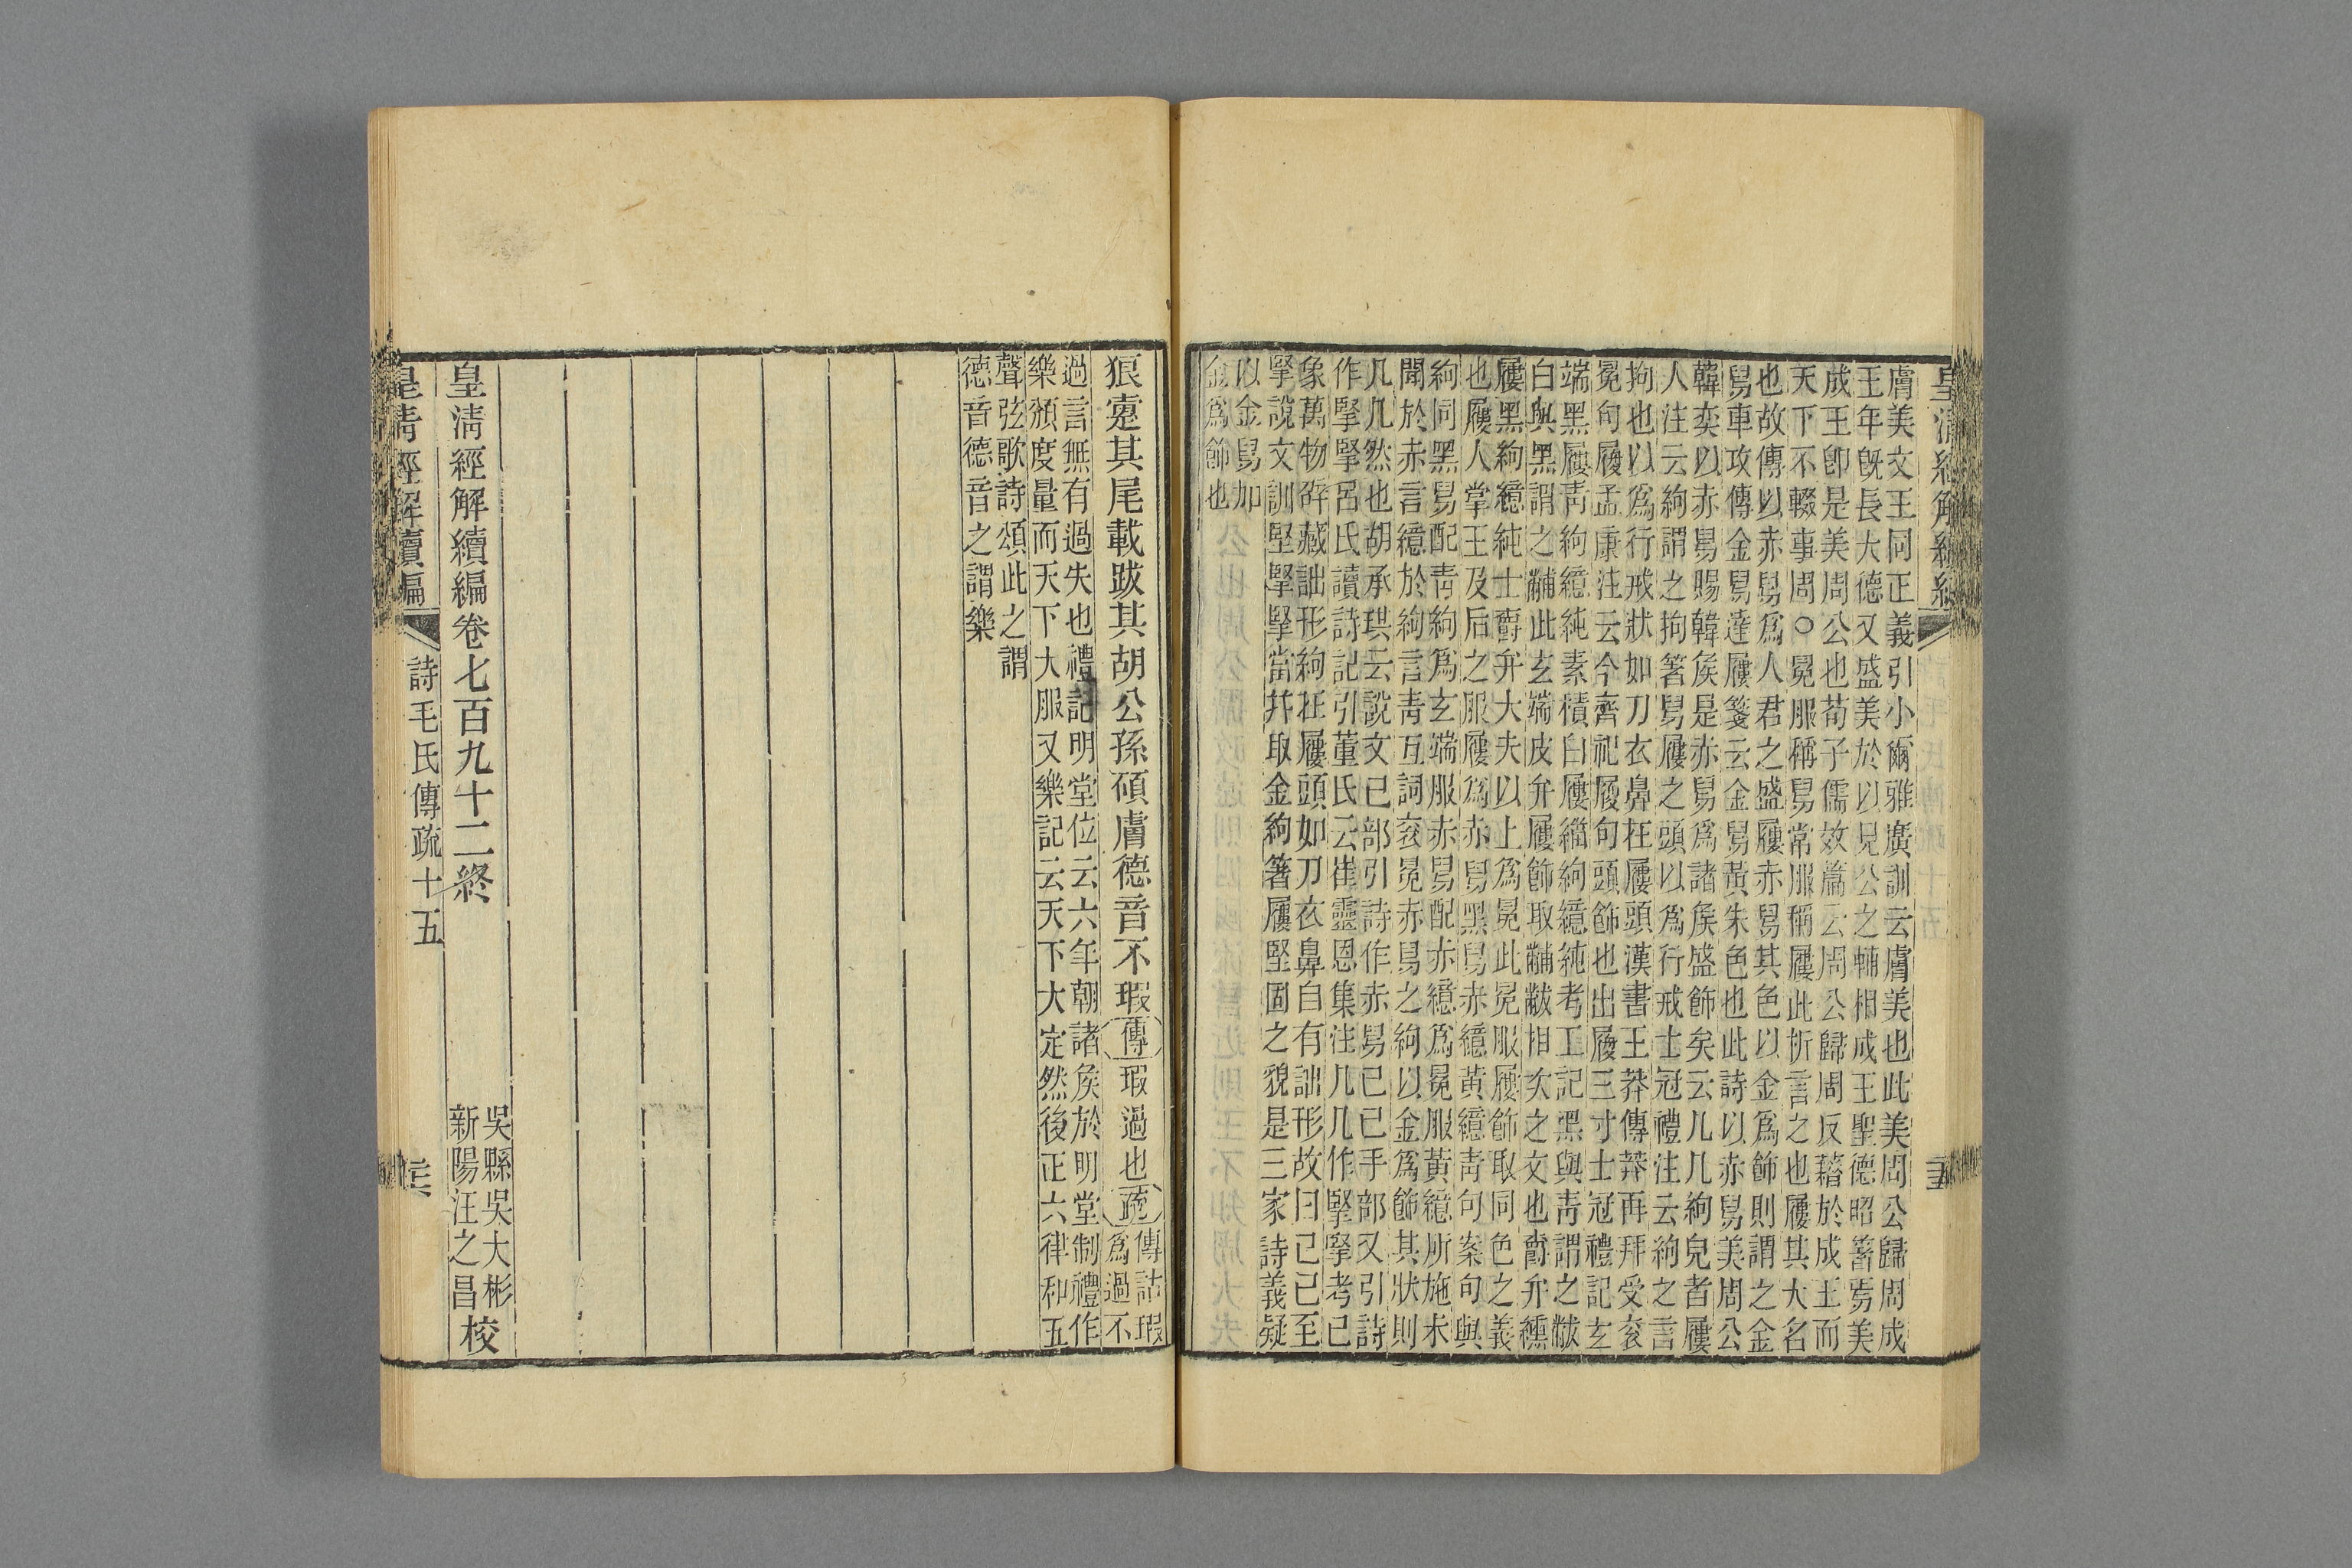 皇清經解續編
膚美文王同正義引小爾雅廣訓云膚美也此美周公歸周成
王年旣長大德又盛美於以見公之輔相成王聖德昭著焉美
成王卽是美周公也荀子儒效篇云周公歸周反藉於成王而
天下不輟事周○冕服稱舄常服稱屨此折言之也屨其大名
也故傳以赤舄爲人君之盛屨赤舄其色以金爲飾則謂之金
舄車攻傳金舄達屨箋云金舄黃朱色也此詩以赤舄美周公
韓奕以赤舄賜韓矦是赤舄爲諸矦盛飾矣云几几絇皃者屨
人注云絇謂之拘箸舄屨之頭以爲行戒士冠禮注云絇之言
拘也以爲行戒狀如刀衣鼻在屨頭漢書王莽傳莽再拜受袞
冕句履孟康注云今齊祀履句頭飾也出履三寸士冠禮記玄
端黑屨靑絇繶純素積白屨緇絇繶純考工記黑與靑謂之黻
白與黑謂之黼此玄端皮弁屨飾取黼黻相次之文也爵弁纁
屨黑絇繶純士爵弁大夫以上爲冕此冕服屨飾取同色之義
也屨人掌王及后之服屨爲赤舄黑舄赤繶黃繶靑句案句與
絇同黑舄配靑絇爲玄端服赤舄配赤繶爲冕服黃繶所施未
聞於赤言繶於絇言靑互詞袞冕赤舄之絇以金爲飾其狀則
几几然也胡承珙云說文己部引詩作赤舄己己手部又引詩
作掔掔呂氏讀詩記引董氏云崔靈恩集注几几作掔掔考己
象萬物辟藏詘形絇在屨頭如刀衣鼻自有詘形故曰己己至
掔說文訓堅掔掔當幷取金絇箸屨堅固之貌是三家詩義疑
以金舄加
金爲飾也
狼疐其尾載跋其胡公孫碩膚德音不瑕傳瑕過也疏傳詁瑕
爲過不
過言無有過失也禮記明堂位云六年朝諸矦於明堂制禮作
樂頒度量而天下大服又樂記云天下大定然後正六律和五
聲弦歌詩頌此之謂
德音德音之謂樂
吳縣吳大彬
新陽汪之昌校
皇淸經解續編卷七百九十二終
皇淸經解續編
詩毛氏傳疏十五